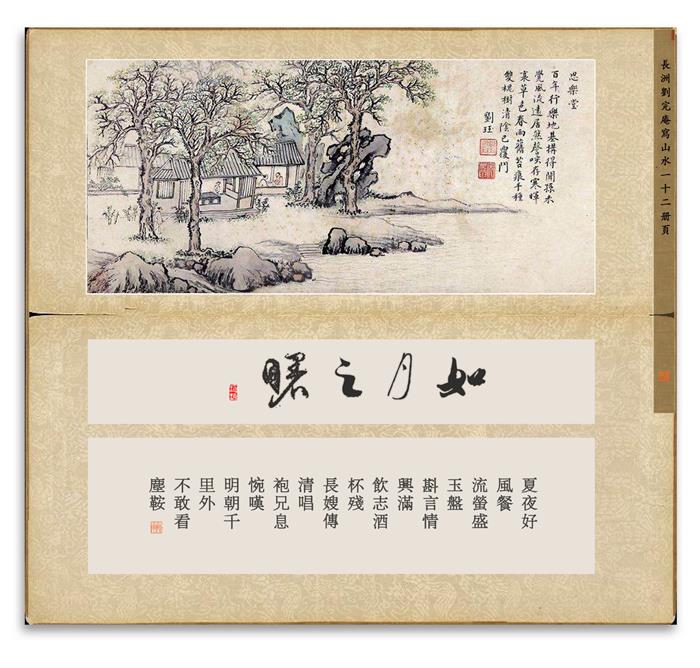 長洲劉完庵寫山水一十二册頁
思樂堂
百年行樂地基搆得開孫木
覺風流遠居然謦咳存寒暉
衰草色春雨舊苔痕手種
雙槐樹清陰已覆門
劉珏
如月之曙
夏夜好
風餐
流螢盛
玉盤
斟言情
興滿
飲志酒
杯殘
長嫂傳
清唱
袍兄息
惋嘆
明朝千
里外
不敢看
塵鞍